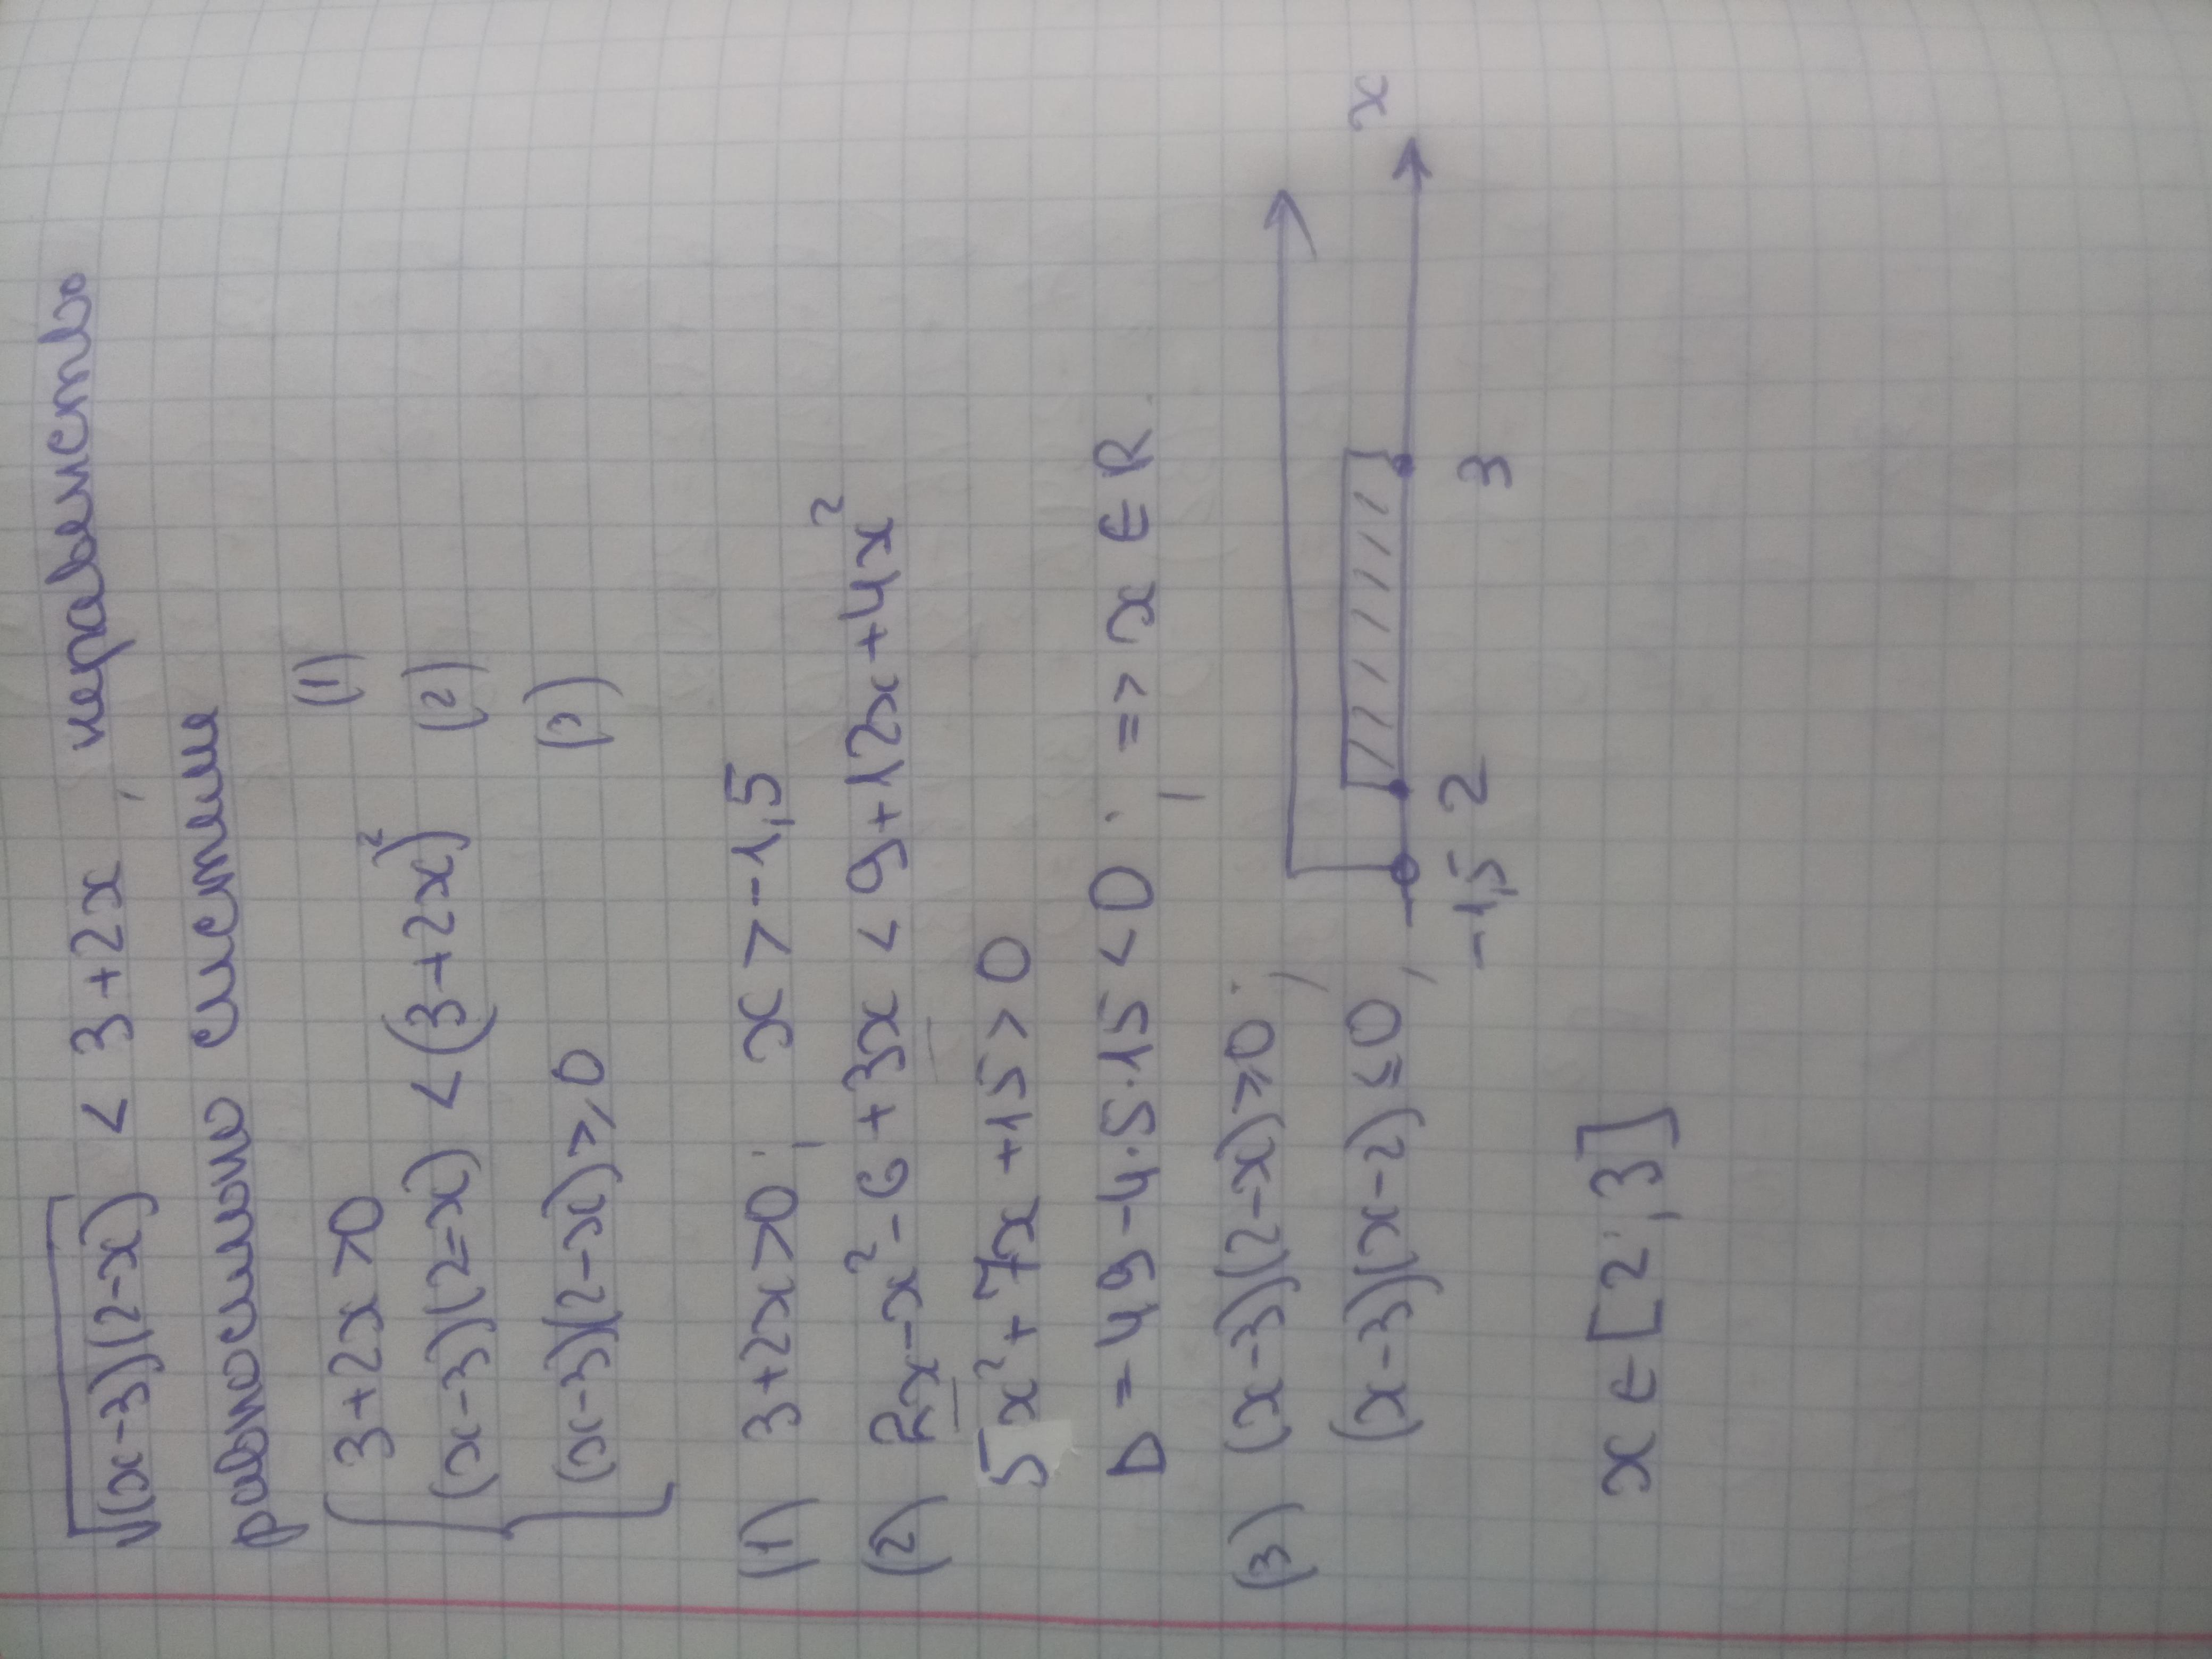 √(x-3)(2-x) < 3+2x, неравенство
равносильно системе
3+2x>0 (1)
(x-3)(2-x) < (3+2x)² (2)
(x-3)(2-x)⩾0 (3)
(1) 3+2x>0; x>-1,5
(2) 2x-x²-6+3x<9+12x+4x²
5x²+7x+15>0
D=49-4·5·15<0; => x ∈ R
(3) (x-3)(2-x)⩾0;
(x-3)(x-2)≤0,
x
-1,5 2 3
x ∈ [2;3]